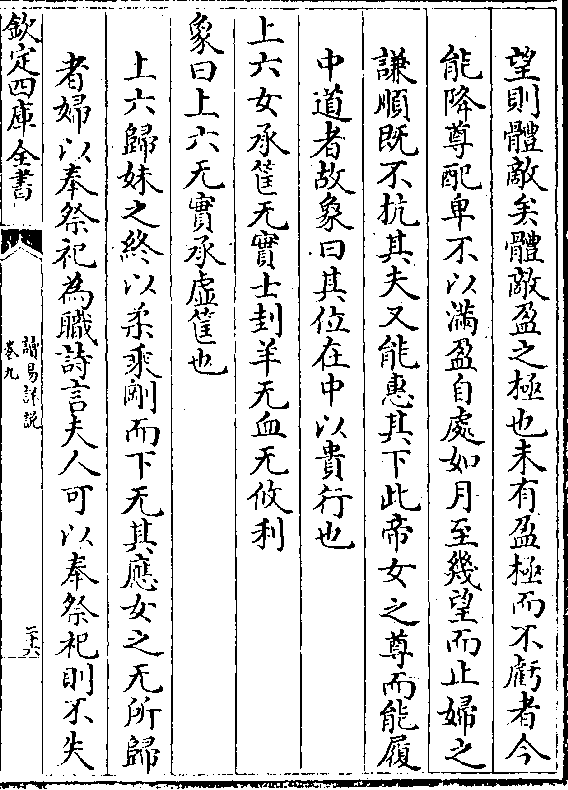 望則體敵矣體敵盈之極也未有盈極而不虧者今
能降尊配卑不以滿盈自處如月至幾望而止婦之
謙順既不抗其夫又能惠其下此帝女之尊而能履
中道者故象曰其位在中以貴行也
上六女承筐无實士刲羊无血无攸利
象曰上六无實承虛筐也
上六歸妹之終以柔乘剛而下无其應女之无所歸
者婦以奉祭祀為職詩言夫人可以奉祭祀則不失
欽定四庫全書
讀易詳説
卷九
二十六